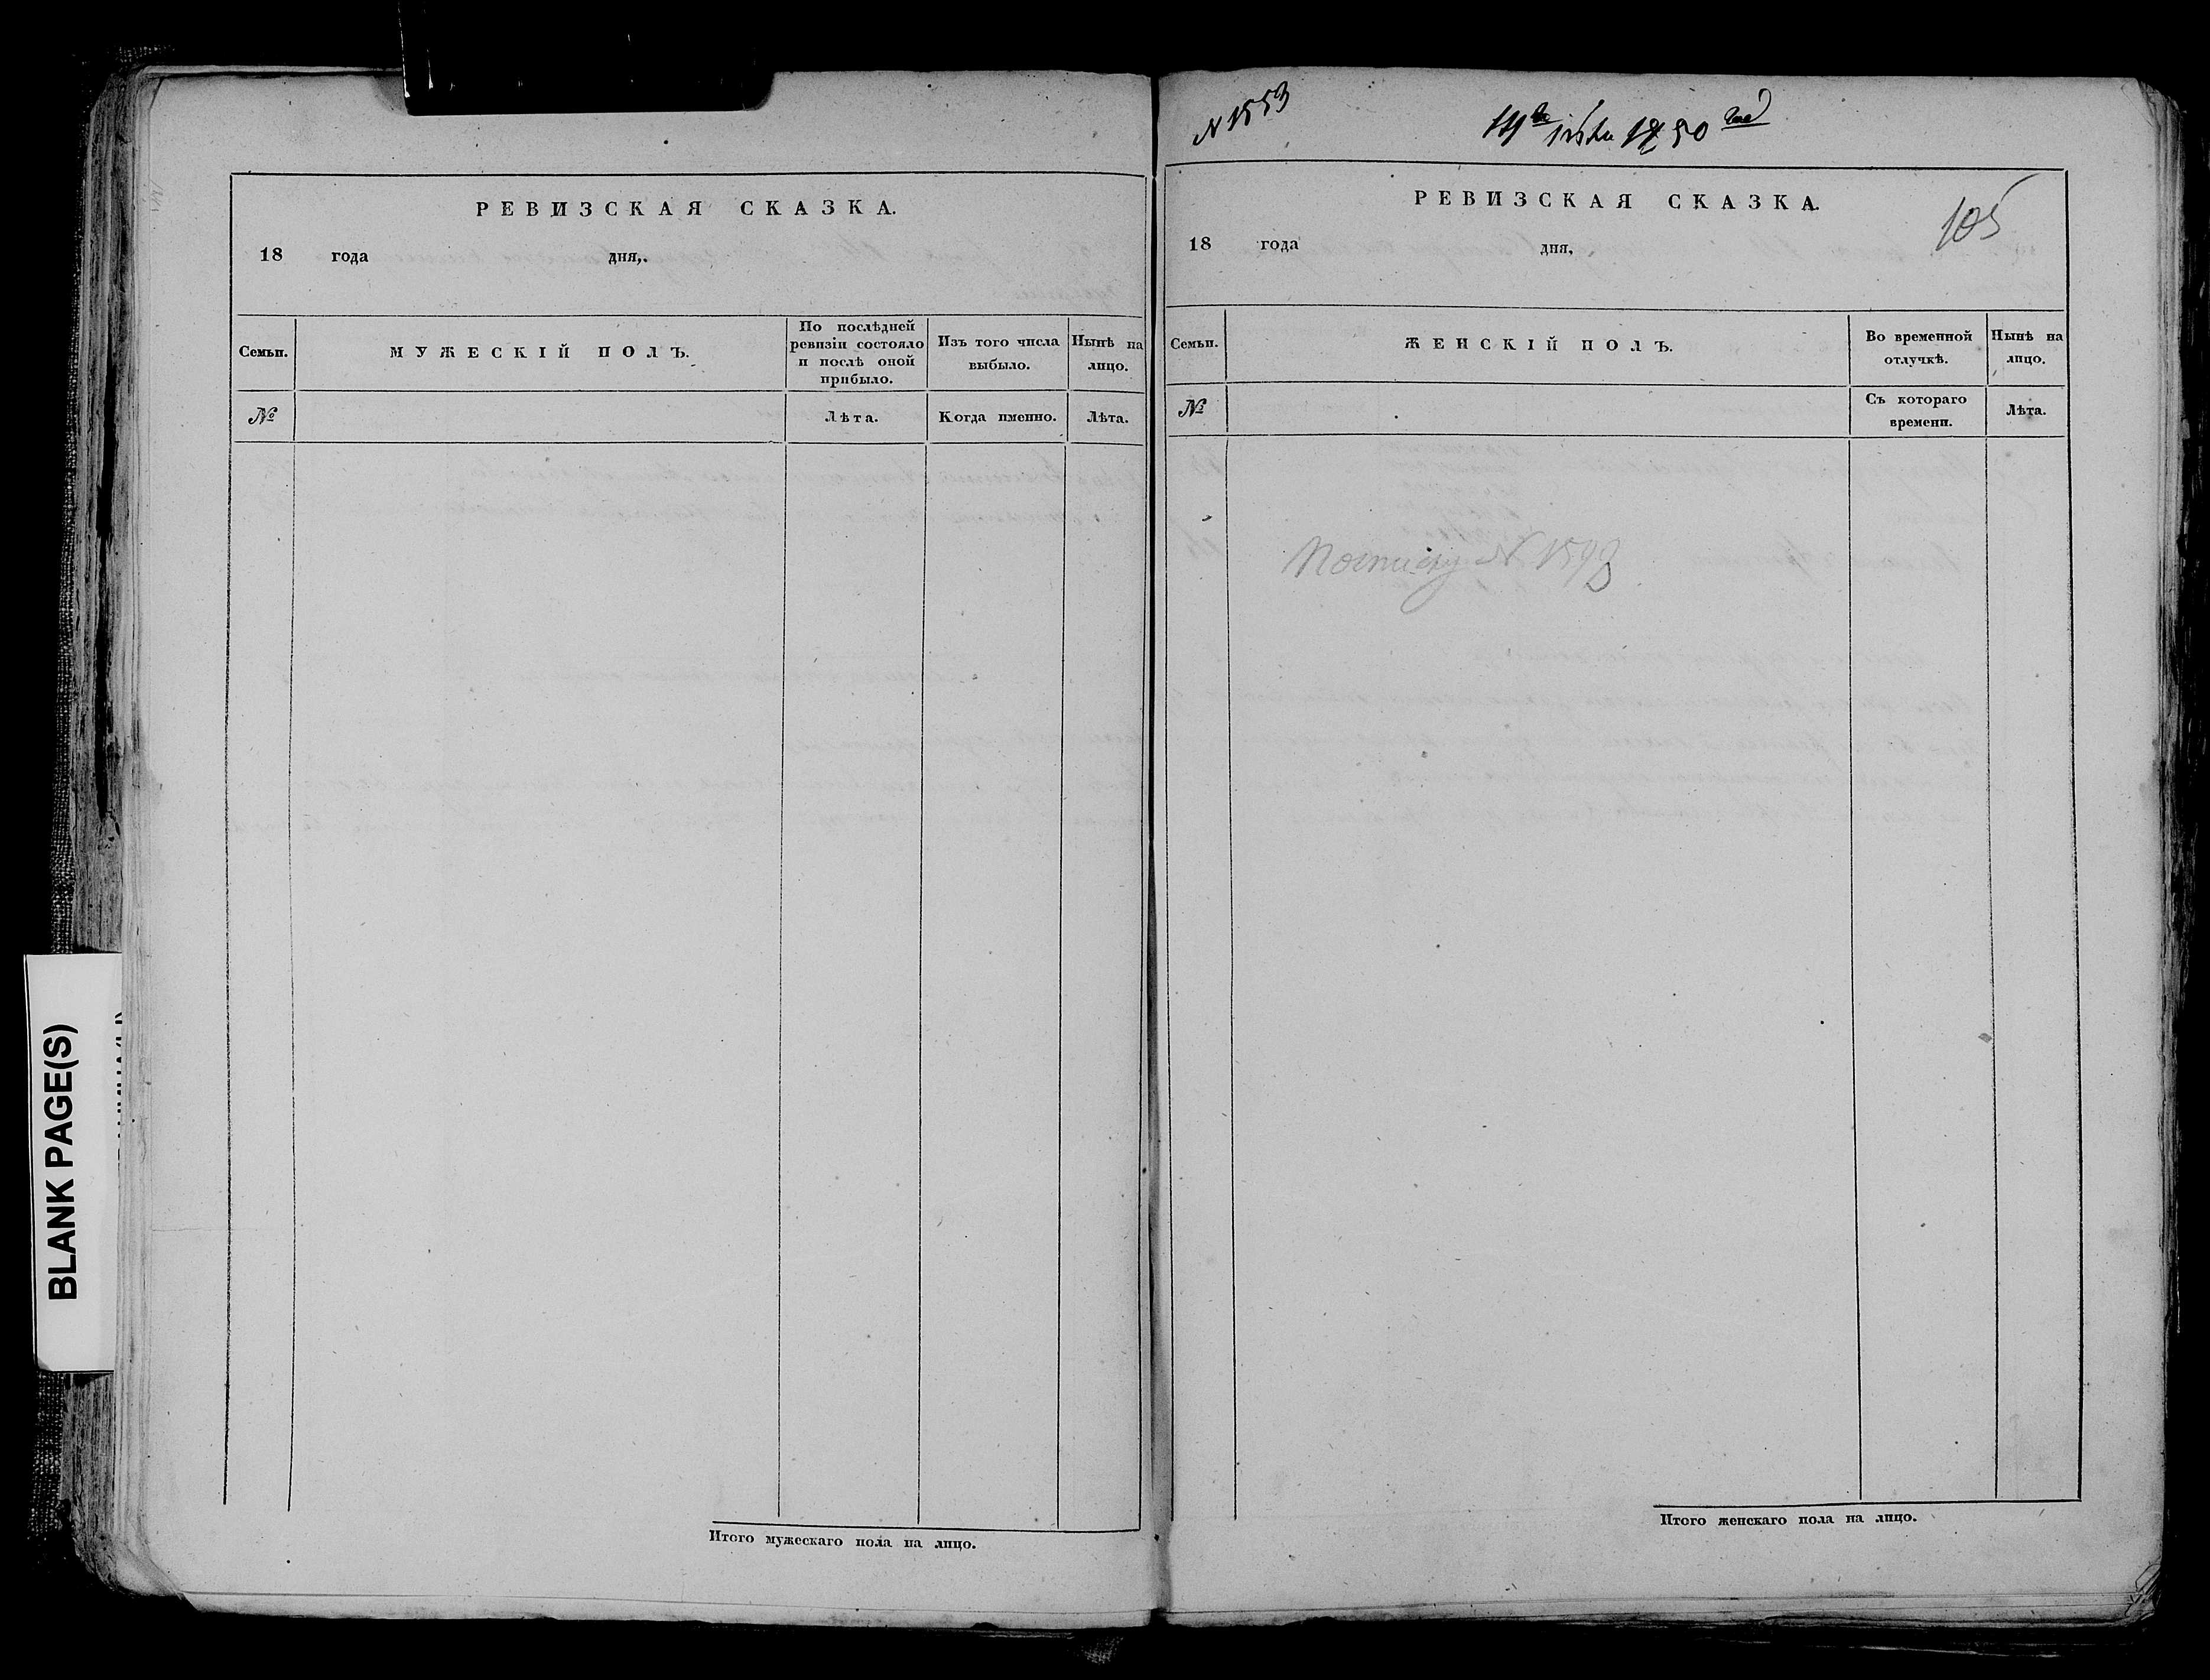 РЕВИЗСКАЯ СКАЗКА.
18 года дня,.
Семьи.
МУЖЕСКІЙ ПОЛЪ.
По послѣдней
ревизіи состояло
и послѣ оной
прибыло.
Изъ того числа
выбыло.
Нынѣ на
лицо.
№
Лѣта.
Когда именно.
Лѣта.
Итого мужескаго пола на лицо.
N 1553
1850
РЕВИЗСКАЯ СКАЗКА.
105
18 года дня,
Семьи.
ЖЕНСКІЙ ПОЛЪ.
Во временной
отлучкѣ.
Нынѣ на
лицо.
№
Съ котораго
времени.
Лѣта.
N 1593
Итого женскаго пола на лицо.
BLANK PAGE(S)